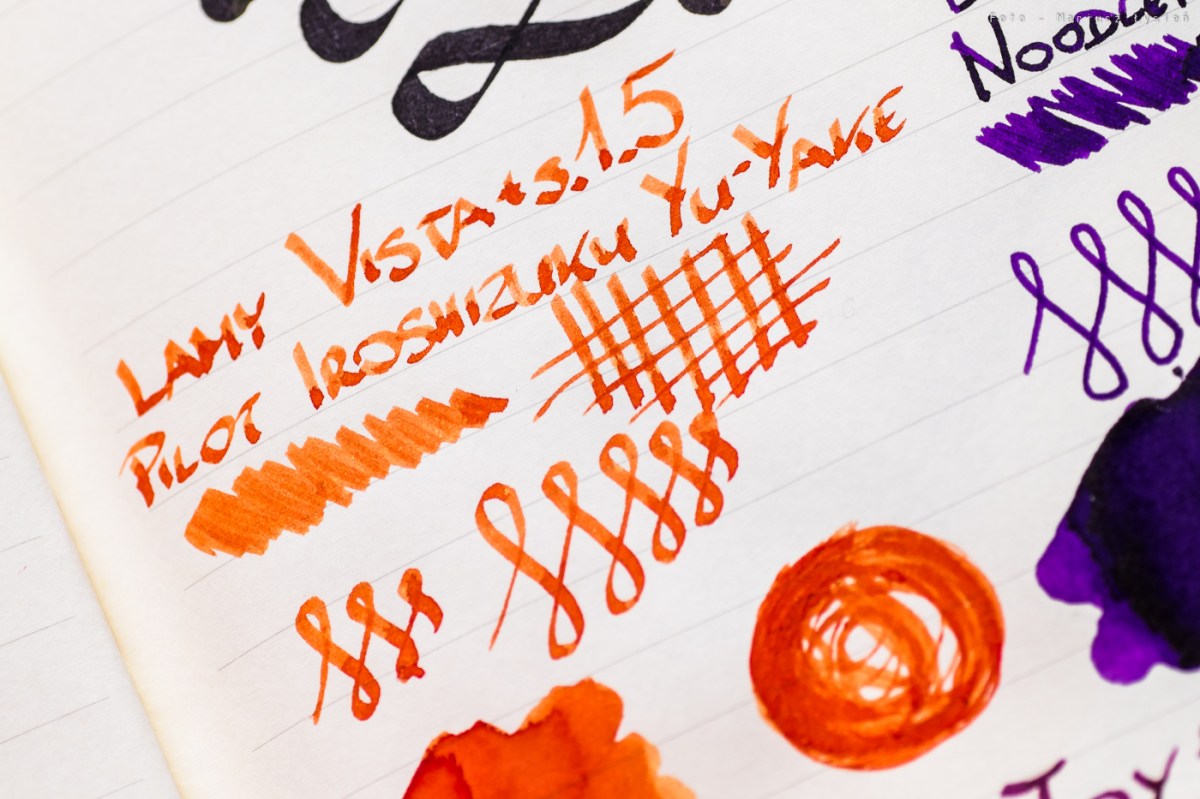 Foto - Mariusz
Noodler
Lamy Vista + s.1.5
Pilot Iroshizuku Yu-Yake